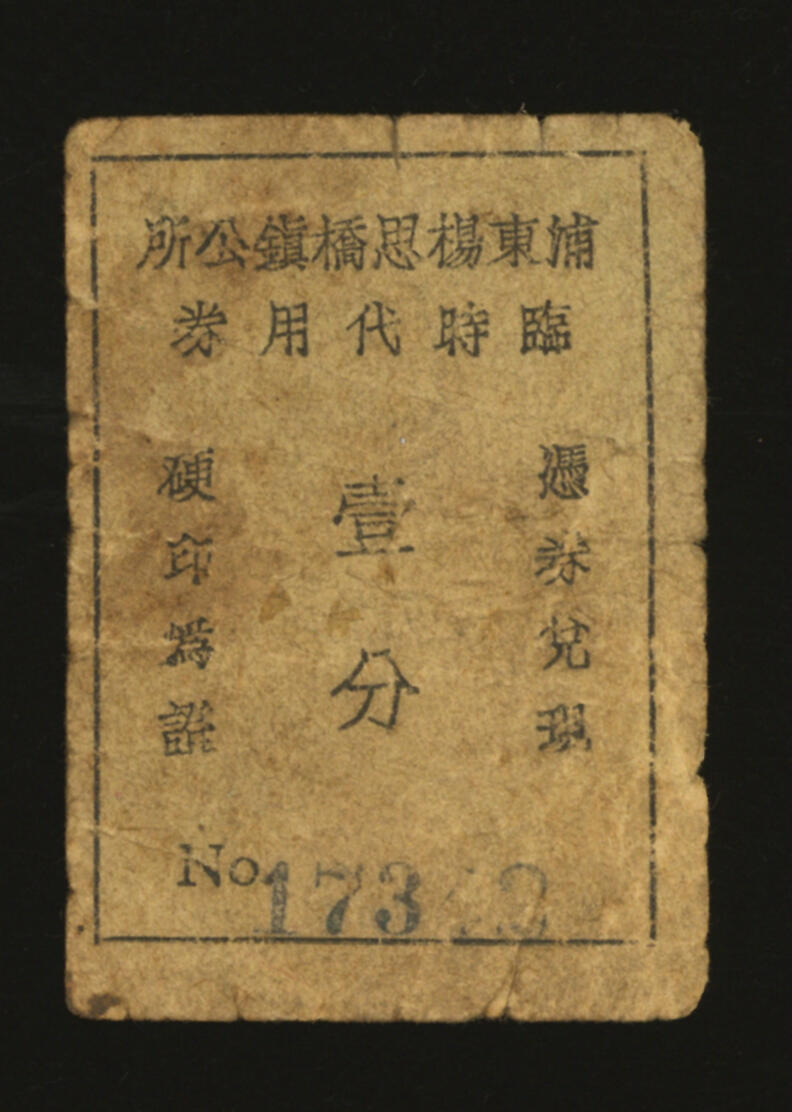 浦東楊思橋鎮公所
臨時代用券
憑券兌現
壹分
硬印為證
No.173